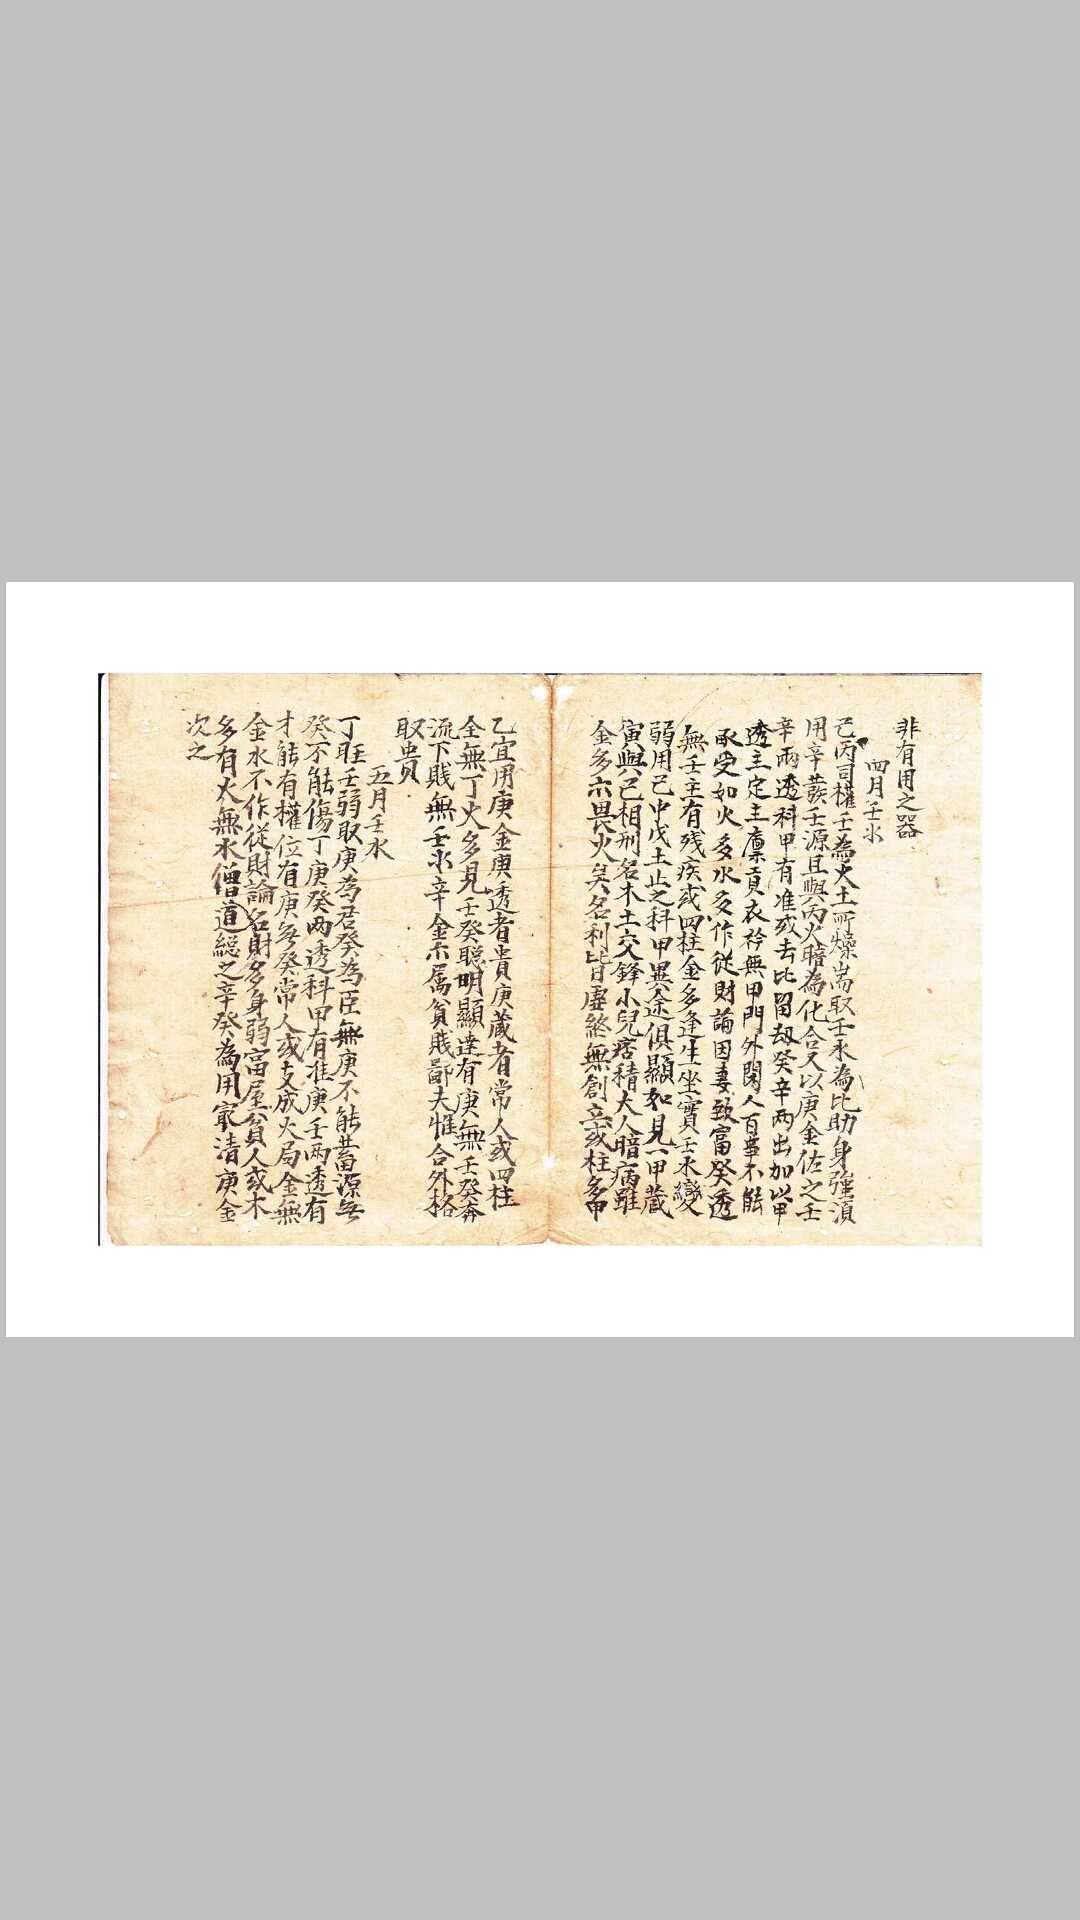 非有用之器
四月壬水
己丙司權壬為火土所燥耑取壬水為比助身強湏
用辛蕟壬源且與丙火暗為化合又以庚金佐之壬
辛兩透科甲有准或去比留刼癸辛两出加以甲
透主定主廪貢衣衿無甲門外閑人百事不能
承受如火多水多作從財論因妻致富癸透
無壬主有残疾或四柱金多逢生坐實壬水變
弱用己中戊土止之科甲異途俱顯如見一甲蔵
寅與己相刑名木土交鋒小兒痞積大人暗病雖
金多亦畏火矣名利皆虛終無創立或柱多甲
乙宜用庚金庚透者貴庚蔵者常人或四柱
全無丁火多見壬癸聰明顯達有庚無壬癸奔
流下賎無壬水辛金亦属貧賎鄙夫惟合外格
取貴
五月壬水
丁旺壬弱取庚為君癸為臣無庚不能蓄源無
癸不能傷丁庚癸两透科甲有准庚壬两透有
才能有權位有庚無癸常人或支成火局金無
金水不作從財論名財多身弱富屋貧人或木
多有火無水僧道総之辛癸為用冣清庚金
次之